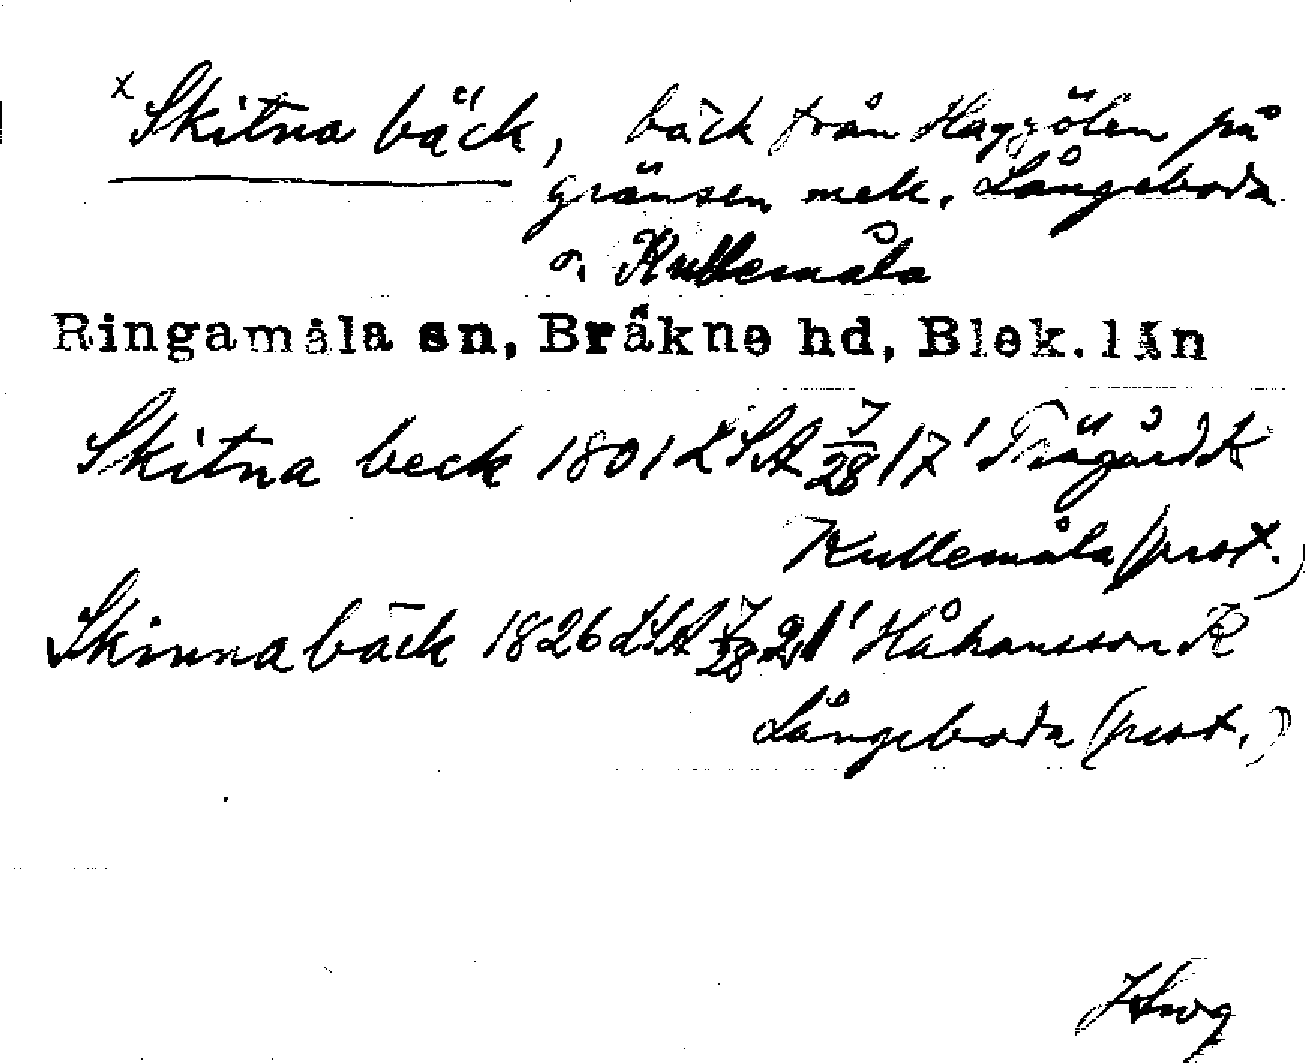 x Skitna bäck, bäck från Haggölen på
gränsen mell. Långeboda
o. Kullemåla
Ringamåla sn, Bräkne hd, Blek. län
Skitna beck 1801 LSA J/28 17' Trägård K
Kullemåla (prot.)
Skinna bäck 1826 LSA J/28 21' Håkansson K
Långeboda (prot.)